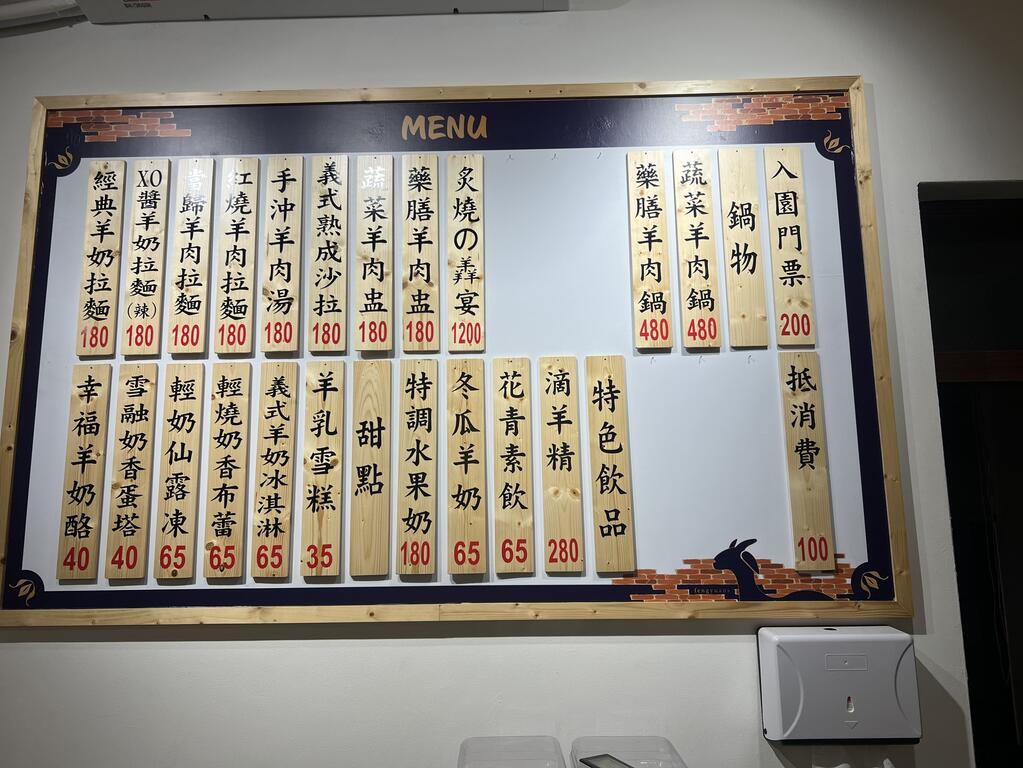 MENU
入園門票 200
鍋物
蔬菜羊肉鍋 480
藥膳羊肉鍋 480
炙燒の羴宴 1200
藥膳羊肉盅 180
蔬菜羊肉盅 180
義式熟成沙拉 180
手沖羊肉湯 180
紅燒羊肉拉麵 180
當歸羊肉拉麵 180
XO醬羊奶拉麵(辣) 180
經典羊奶拉麵 180
抵消費 100
特色飲品
滴羊精 280
花青素飲 65
冬瓜羊奶 65
特調水果奶 180
甜點
羊乳雪糕 35
義式羊奶冰淇淋 65
輕燒奶香布蕾 65
輕奶仙露凍 65
雪融奶香蛋塔 40
幸福羊奶酪 40
fengyuans